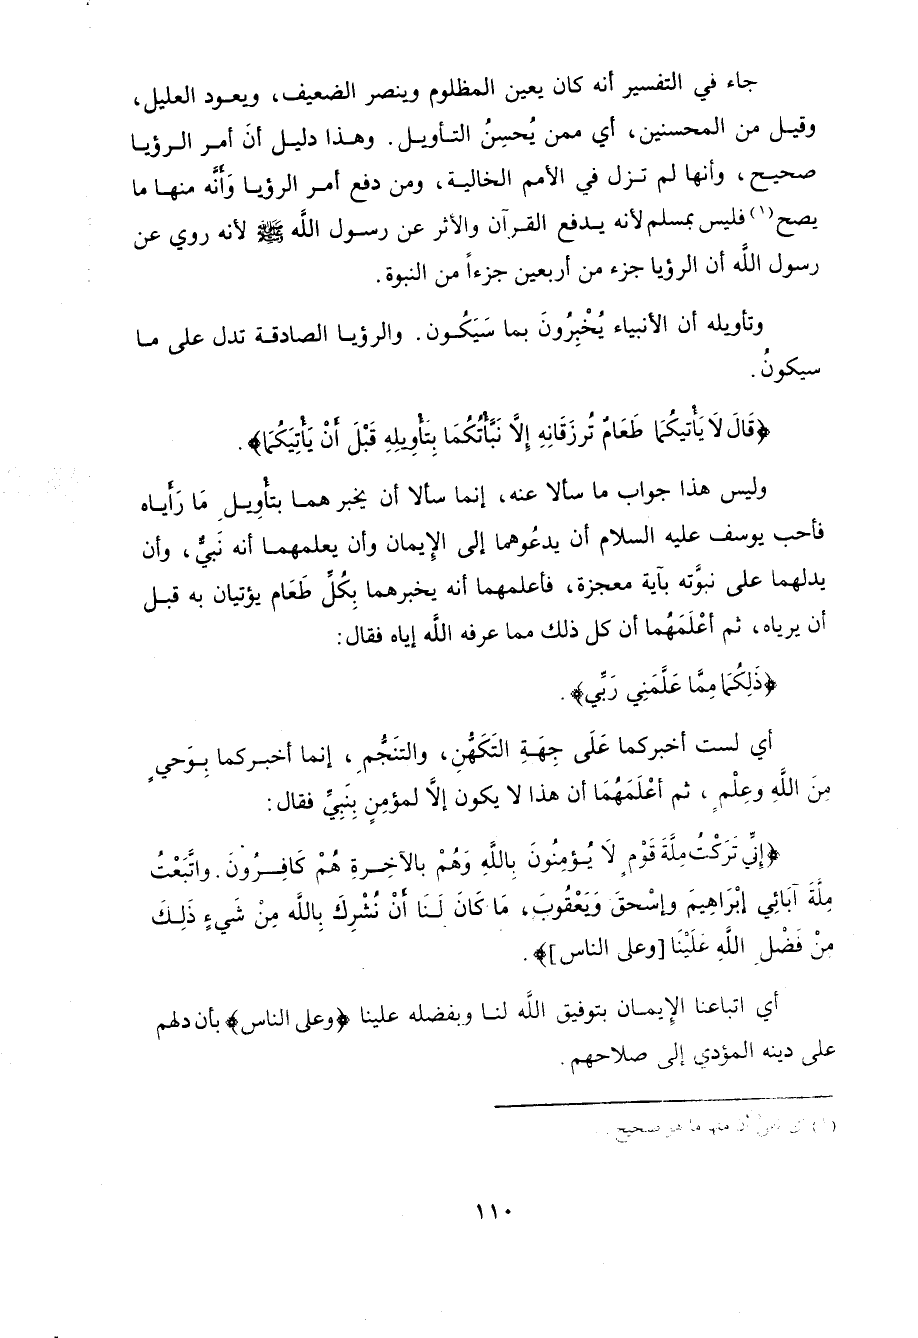 جاء في التفسير أنه كان يعين المظلوم وينصر الضعيف، ويعود العليل،
وقيل من المحسنين، أي ممن يُحسِنُ التأويل. وهذا دليل أنَ أمر الرؤيا
صحيح، وأنها لم تزل في الأمم الخالية، ومن دفع أمر الرؤيا وَأنَّه منها ما
يصح(١) فليس بمسلم لأنه يدفع القرآن والأثر عن رسول اللَّه ﷺ لأنه روي عن
رسول اللَّه أن الرؤيا جزء من أربعين جزءاً من النبوة.
وتأويله أن الأنبياء يُخْبِرُونَ بما سَيَكُون. والرؤيا الصادقة تدل على ما
سيكونُ.
﴿قَالَ لَا يَأْتيكُمَا طَعَامٌ تُرزَقَانِهِ إِلَّا نَبَّأْتُكُمَا بِتَأْوِيلِهِ قَبْلَ أَنْ يَأْتِيَكُمَا﴾.
وليس هذا جواب ما سألا عنه، إنما سألا أن يخبرهما بتأْوِيلِ مَا رَأَياه
فأحب يوسف عليه السلام أن يدعُوهما إلى الإِيمان وأن يعلمهما أنه نَبيٌّ، وأن
يدلهما على نبوَّته بآية معجزة، فأعلمهما أنه يخبرهما بِكُلِّ طَعَام يؤتيان به قبل
أن يرياه، ثم أعْلَمَهُما أن كل ذلك مما عرفه اللَّه إياه فقال:
﴿ذَلِكُمَا مِمَّا عَلَّمَنِي رَبِّي﴾.
أي لست أخبركما عَلَى جِهَةِ التَكَهُّنِ، والتنَجُّمِ، إنما أخبركما بِوَحيٍ
مِنَ اللَّهِ وعِلْمٍ، ثم أعْلَمَهُمَا أن هذا لا يكون إلَّا لمؤمنٍ بِنَبِيٍّ فقال:
﴿إِنِّي تَرَكْتُ مِلَّةَ قَوْمٍ لَا يُؤمِنُونَ بِاللَّهِ وَهُمْ بالآخِرةِ هُمْ كَافِرُونَ. واتَّبَعْتُ
مِلَّةَ آبَائِي إبْرَاهِيمَ وإسْحقَ وَيَعْقُوبَ، مَا كَانَ لَنَا أَنْ نُشْرِكَ بِاللَّه مِنْ شَيءٍ ذَلِكَ
مِنْ فَضْلِ اللَّهِ عَلَيْنَا [وعلى الناس]﴾.
أي اتباعنا الإِيمان بتوفيق اللَّه لنا وبفضله علينا ﴿وعلى الناس﴾ بأن دلهم
على دينه المؤدي إلى صلاحهم.
(١) أن منها ما هو صحيح
١١٠